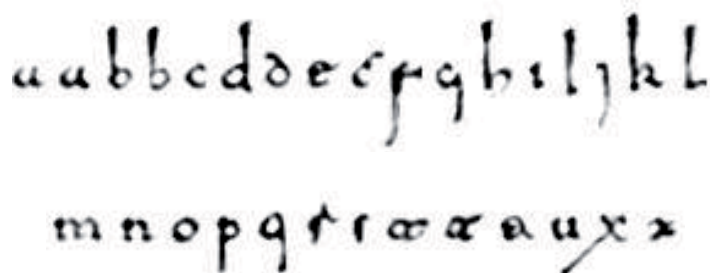 a a b b c d d e e f g h i i j k l
m n o p q r s t t t u x x